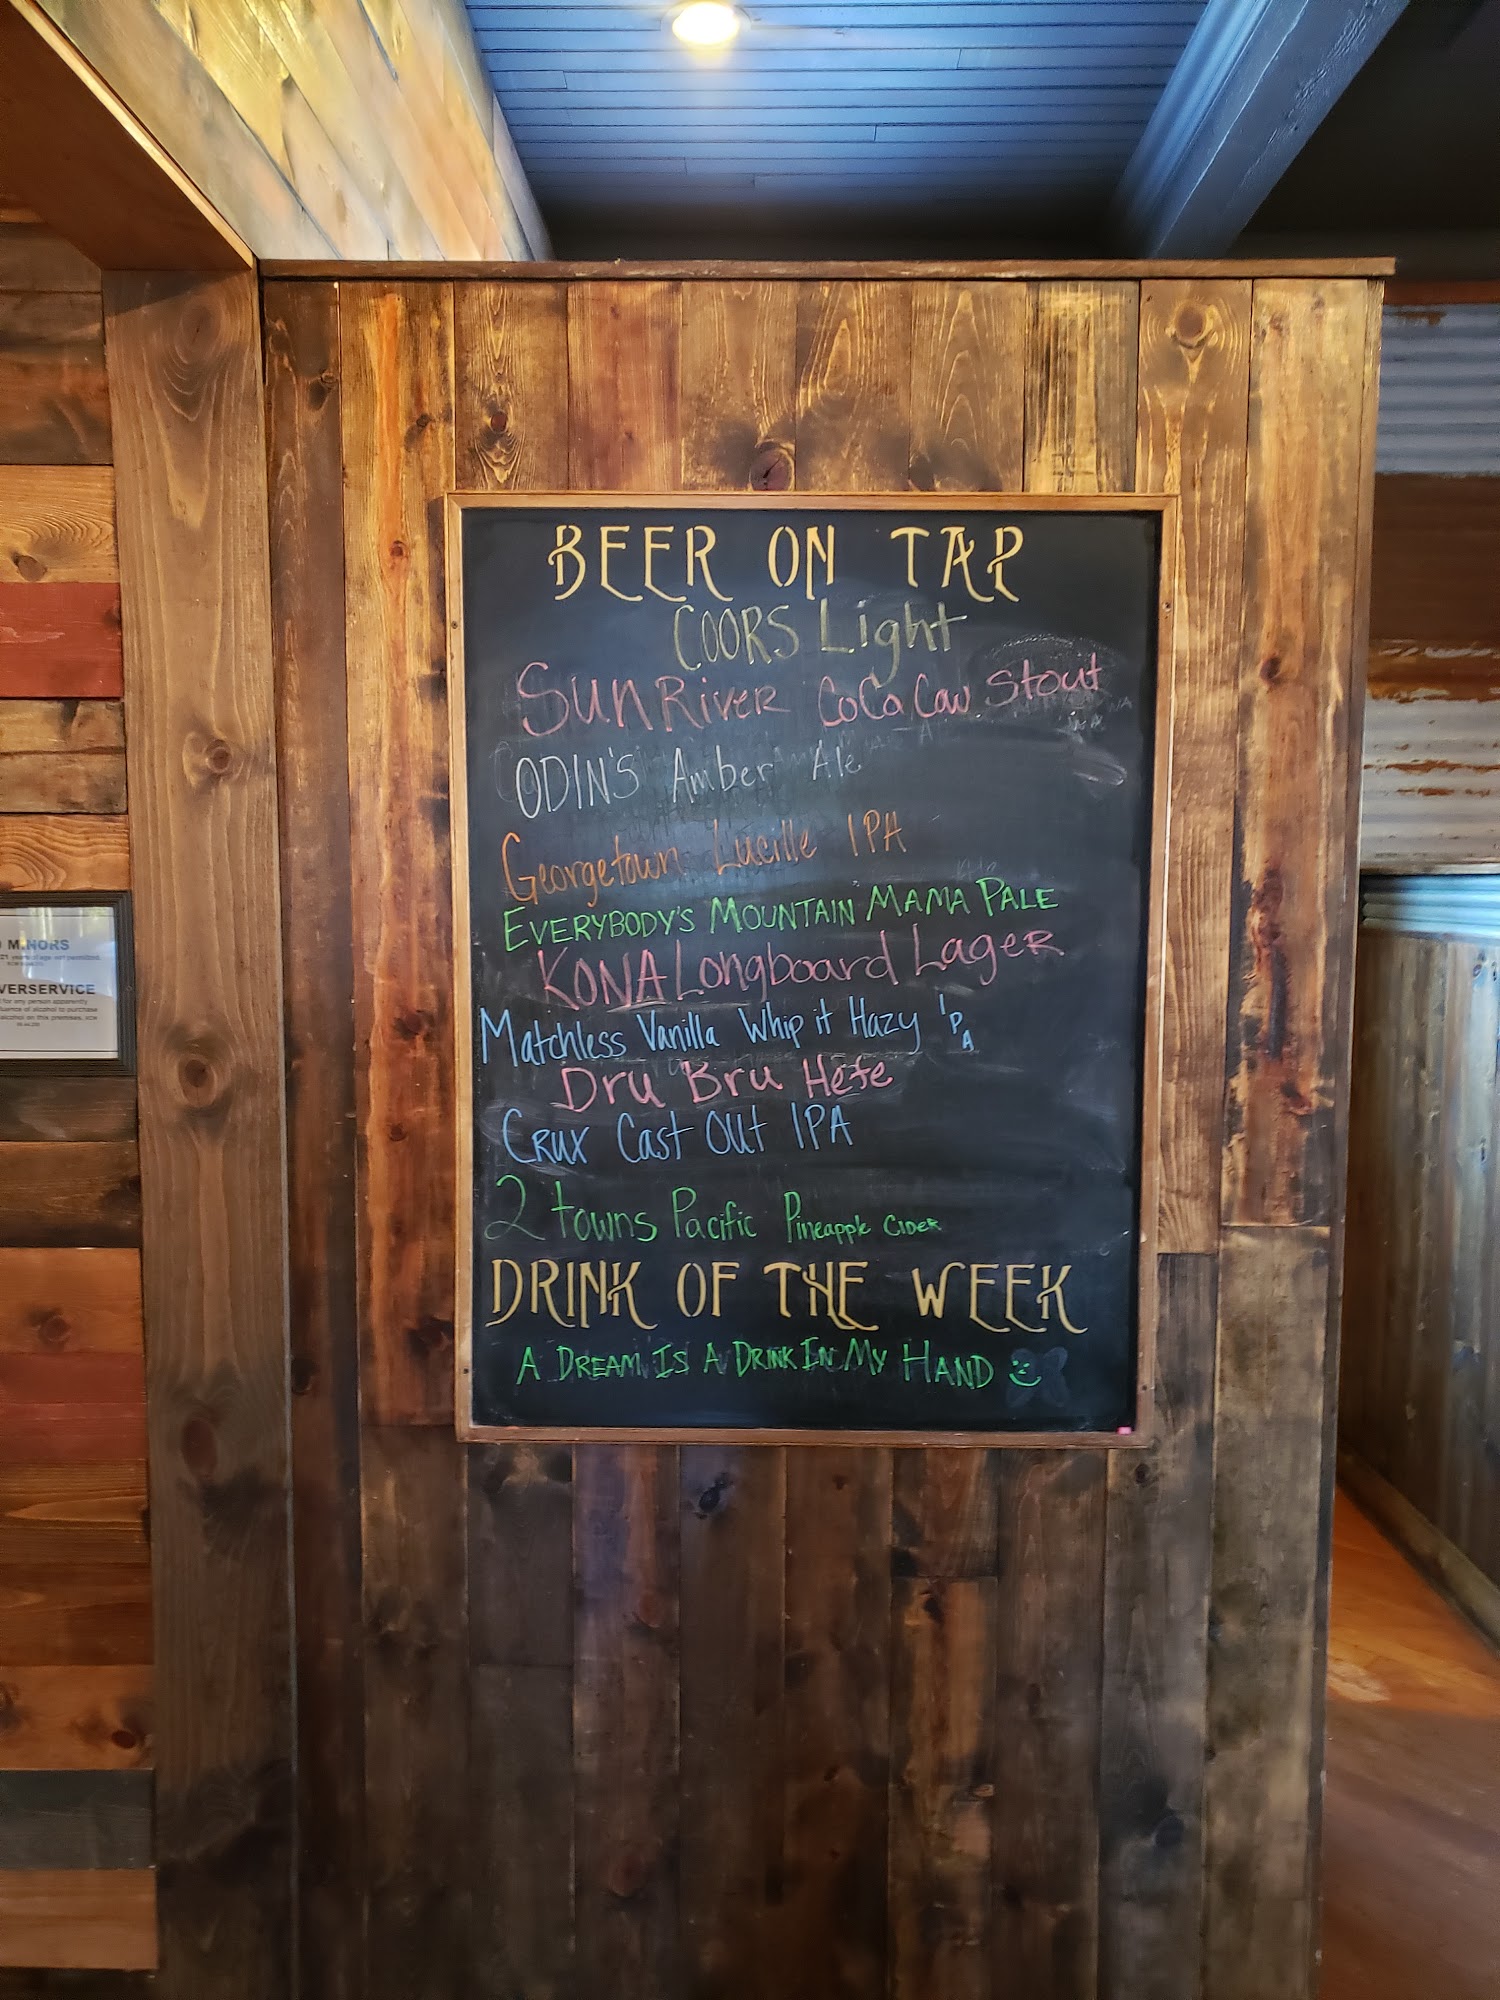 BEER ON TAP
COORS Light
SunRiver CoCo Cow Stout
ODIN'S Amber Ale
Georgetown Lucille IPA
EVERYBODY'S MOUNTAIN MAMA PALE
KONA Longboard Lager
Matchless Vanilla Whip it Hazy IPA
Dru Bru Hefe
Crux Cast Out IPA
2 towns Pacific Pineapple Cider
DRINK OF THE WEEK
A DREAM IS A DRINK IN MY HAND
MINORS
21 years of age not permitted.
VERSERVICE
for any person apparently
fluence of alcohol to purchase
alcohol on this premises.